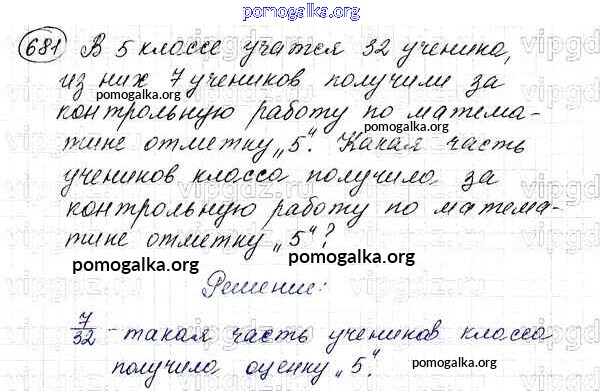 pomogalka.org
681 В 5 классе учатся 32 ученика,
из них 7 учеников получили за
pomogalka.org
контрольную работу по матема-
pomogalka.org
тике отметку „5“. Какая часть
учеников класса получила за
контрольную работу по матема-
тике отметку „5“?
pomogalka.org pomogalka.org
Решение:
7/32 - такая часть учеников класса
получила оценку „5“.
pomogalka.org